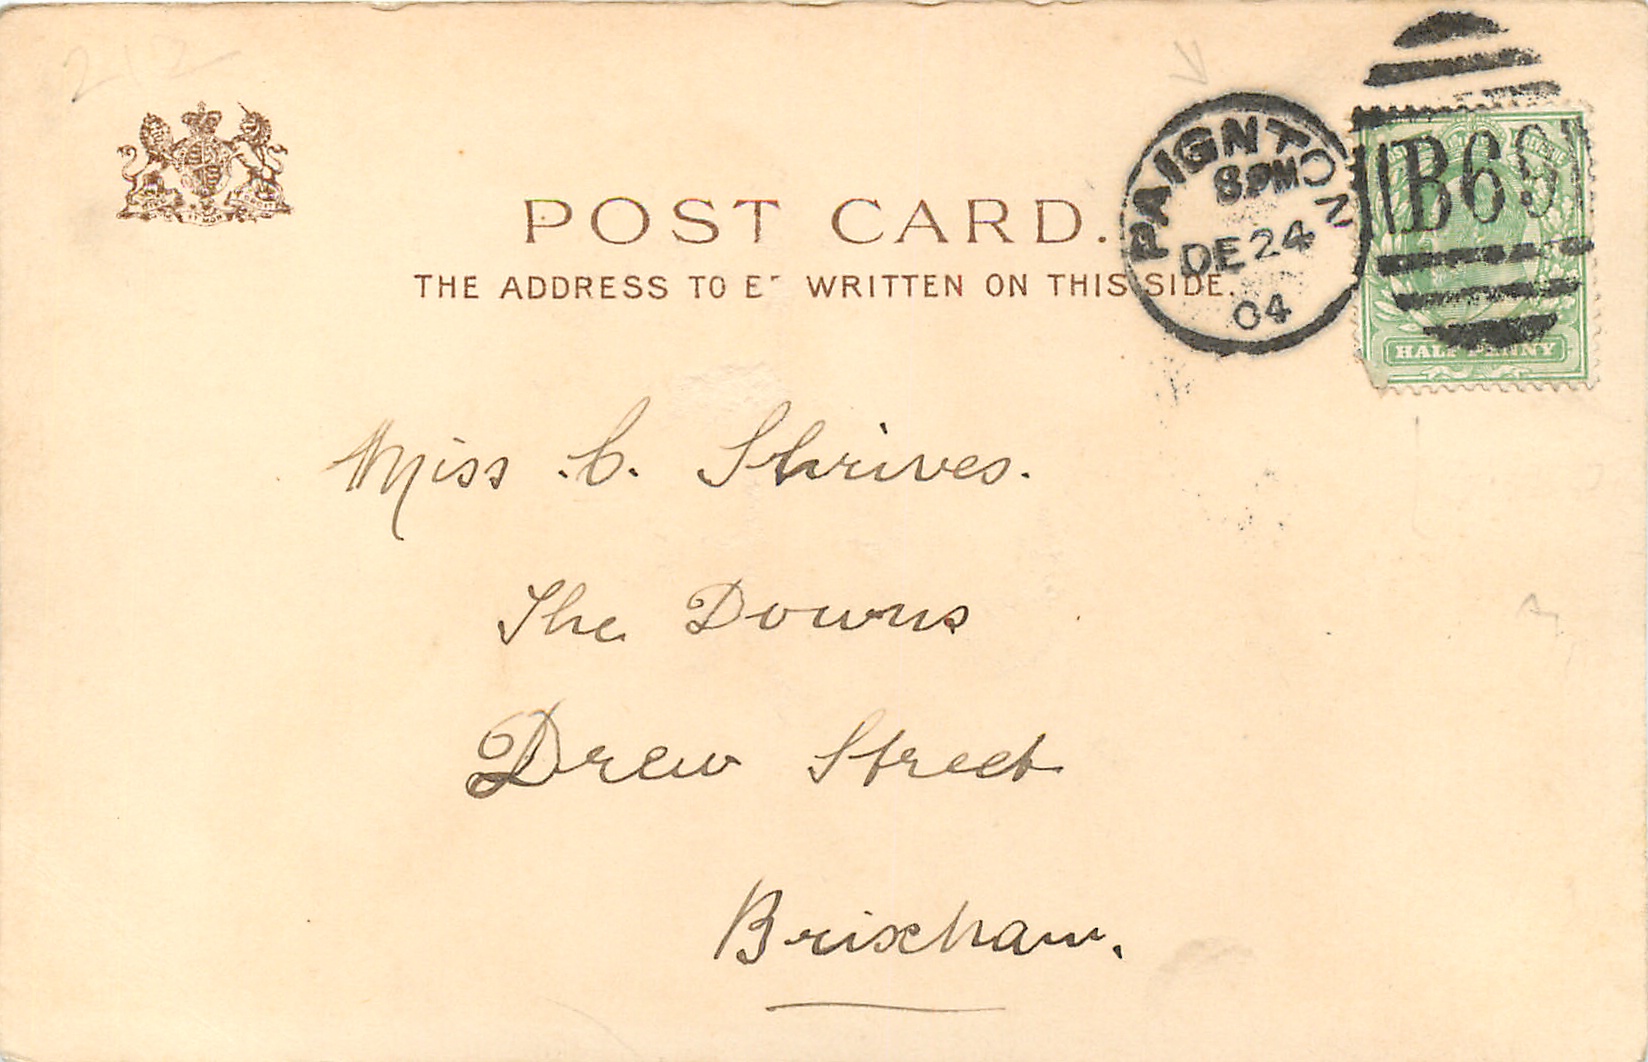 212
POST CARD.
THE ADDRESS TO E- WRITTEN ON THIS SIDE.
PAIGNTON
8 PM
DE 24
04
B69
HALF PENNY
Miss C. Shrives.
The Downs
Drew Street
Brixham.